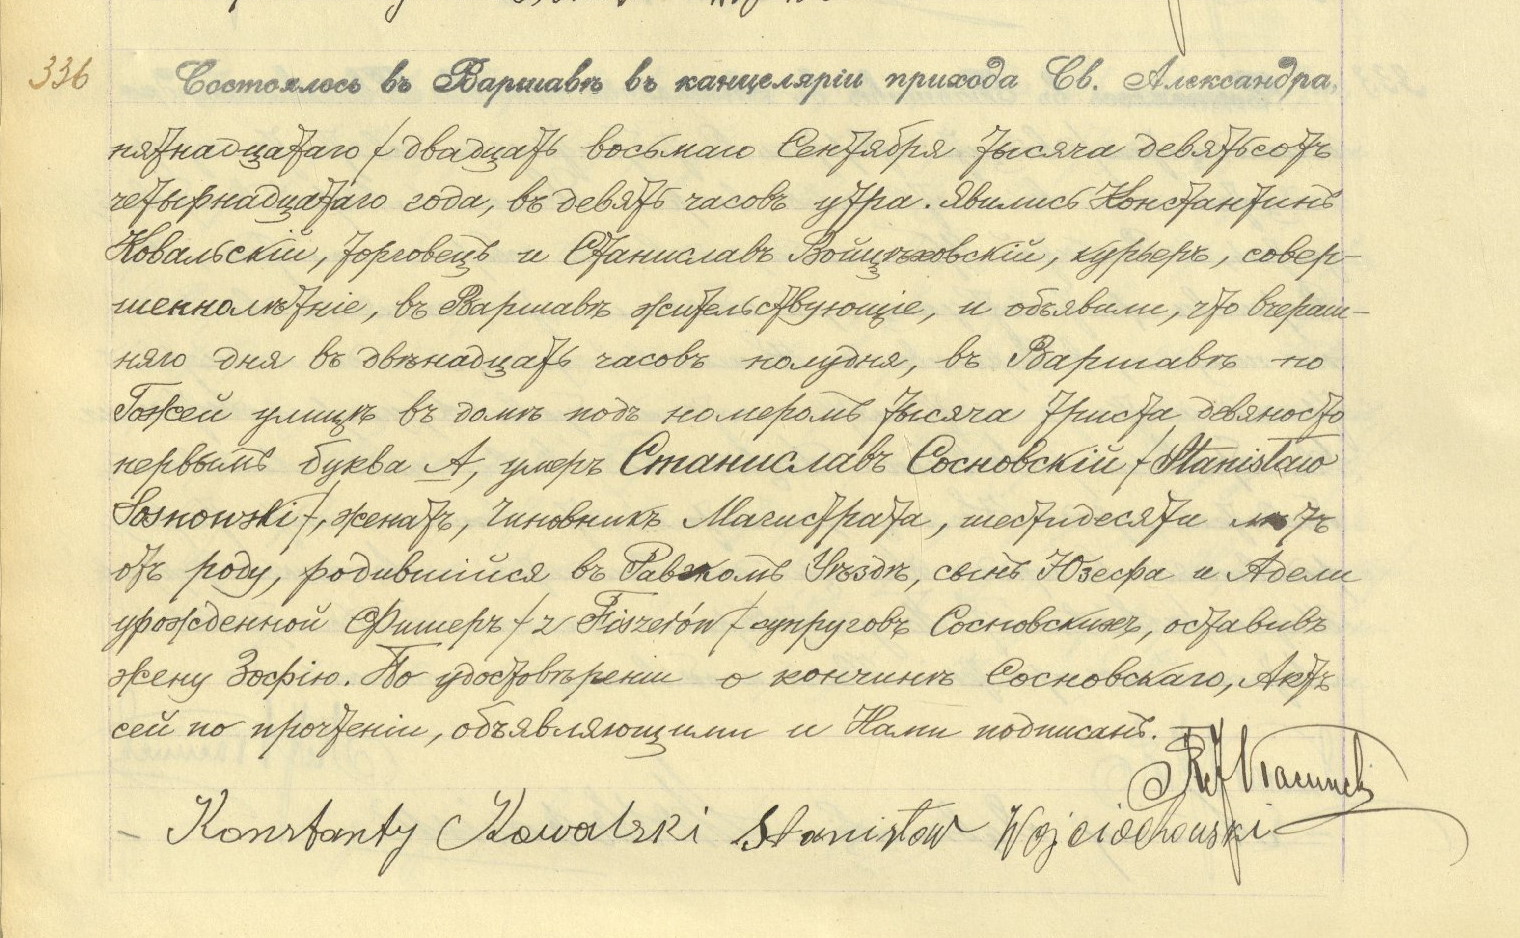 336
Состоялось въ Варшавѣ въ канцеляріи прихода Св. Александра,
пятнадцатаго / двадцать восьмаго Сентября тысяча девятьсотъ
четырнадцатаго года, въ девять часовъ утра. Явились Константинъ
Ковальскій, торговецъ и Станиславъ Войцѣховскій, курьеръ, совер-
шеннолѣтніе, въ Варшавѣ жительствующіе, и объявили, что вчераш-
няго дня въ двѣнадцать часовъ полудня, въ Варшавѣ по
Гожей улицѣ въ домѣ подъ номеромъ тысяча триста девяносто
первымъ буква А, умеръ Станиславъ Сосновскій / Stanisław
Sosnowski /, женатъ, чиновникъ Магистрата, шестидесяти лѣтъ
отъ роду, родившійся въ Равскомъ Уѣздѣ, сынъ Юзефа и Адели
урожденной Фишеръ / z Fiszerów / супруговъ Сосновскихъ, оставивъ
жену Зофію. По удостовѣреніи о кончинѣ Сосновскаго, Актъ
сей по прочтеніи, объявляющими и Нами подписанъ.
Konstanty Kowalski Stanisław Wojciechowski